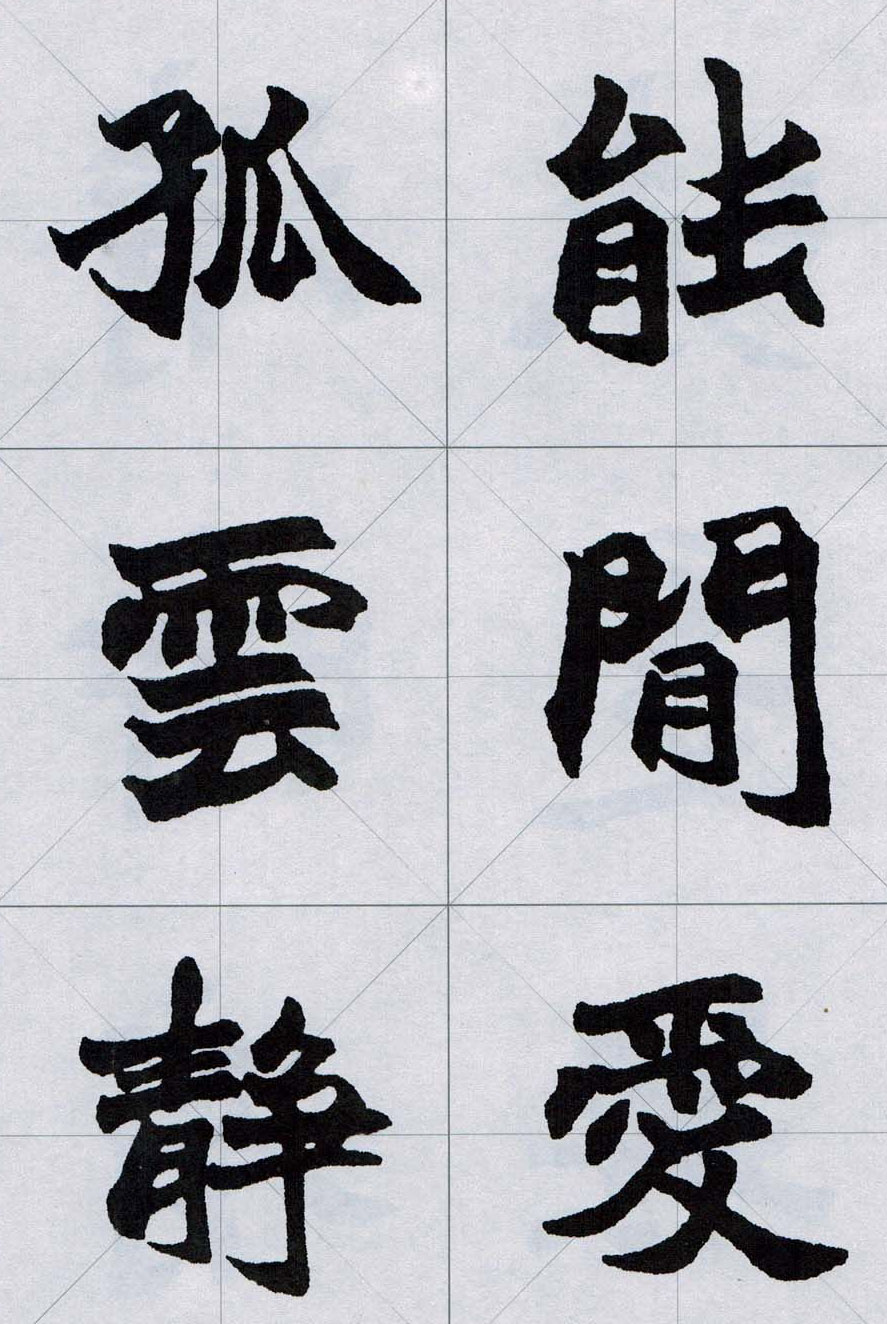 能閒愛
孤雲静